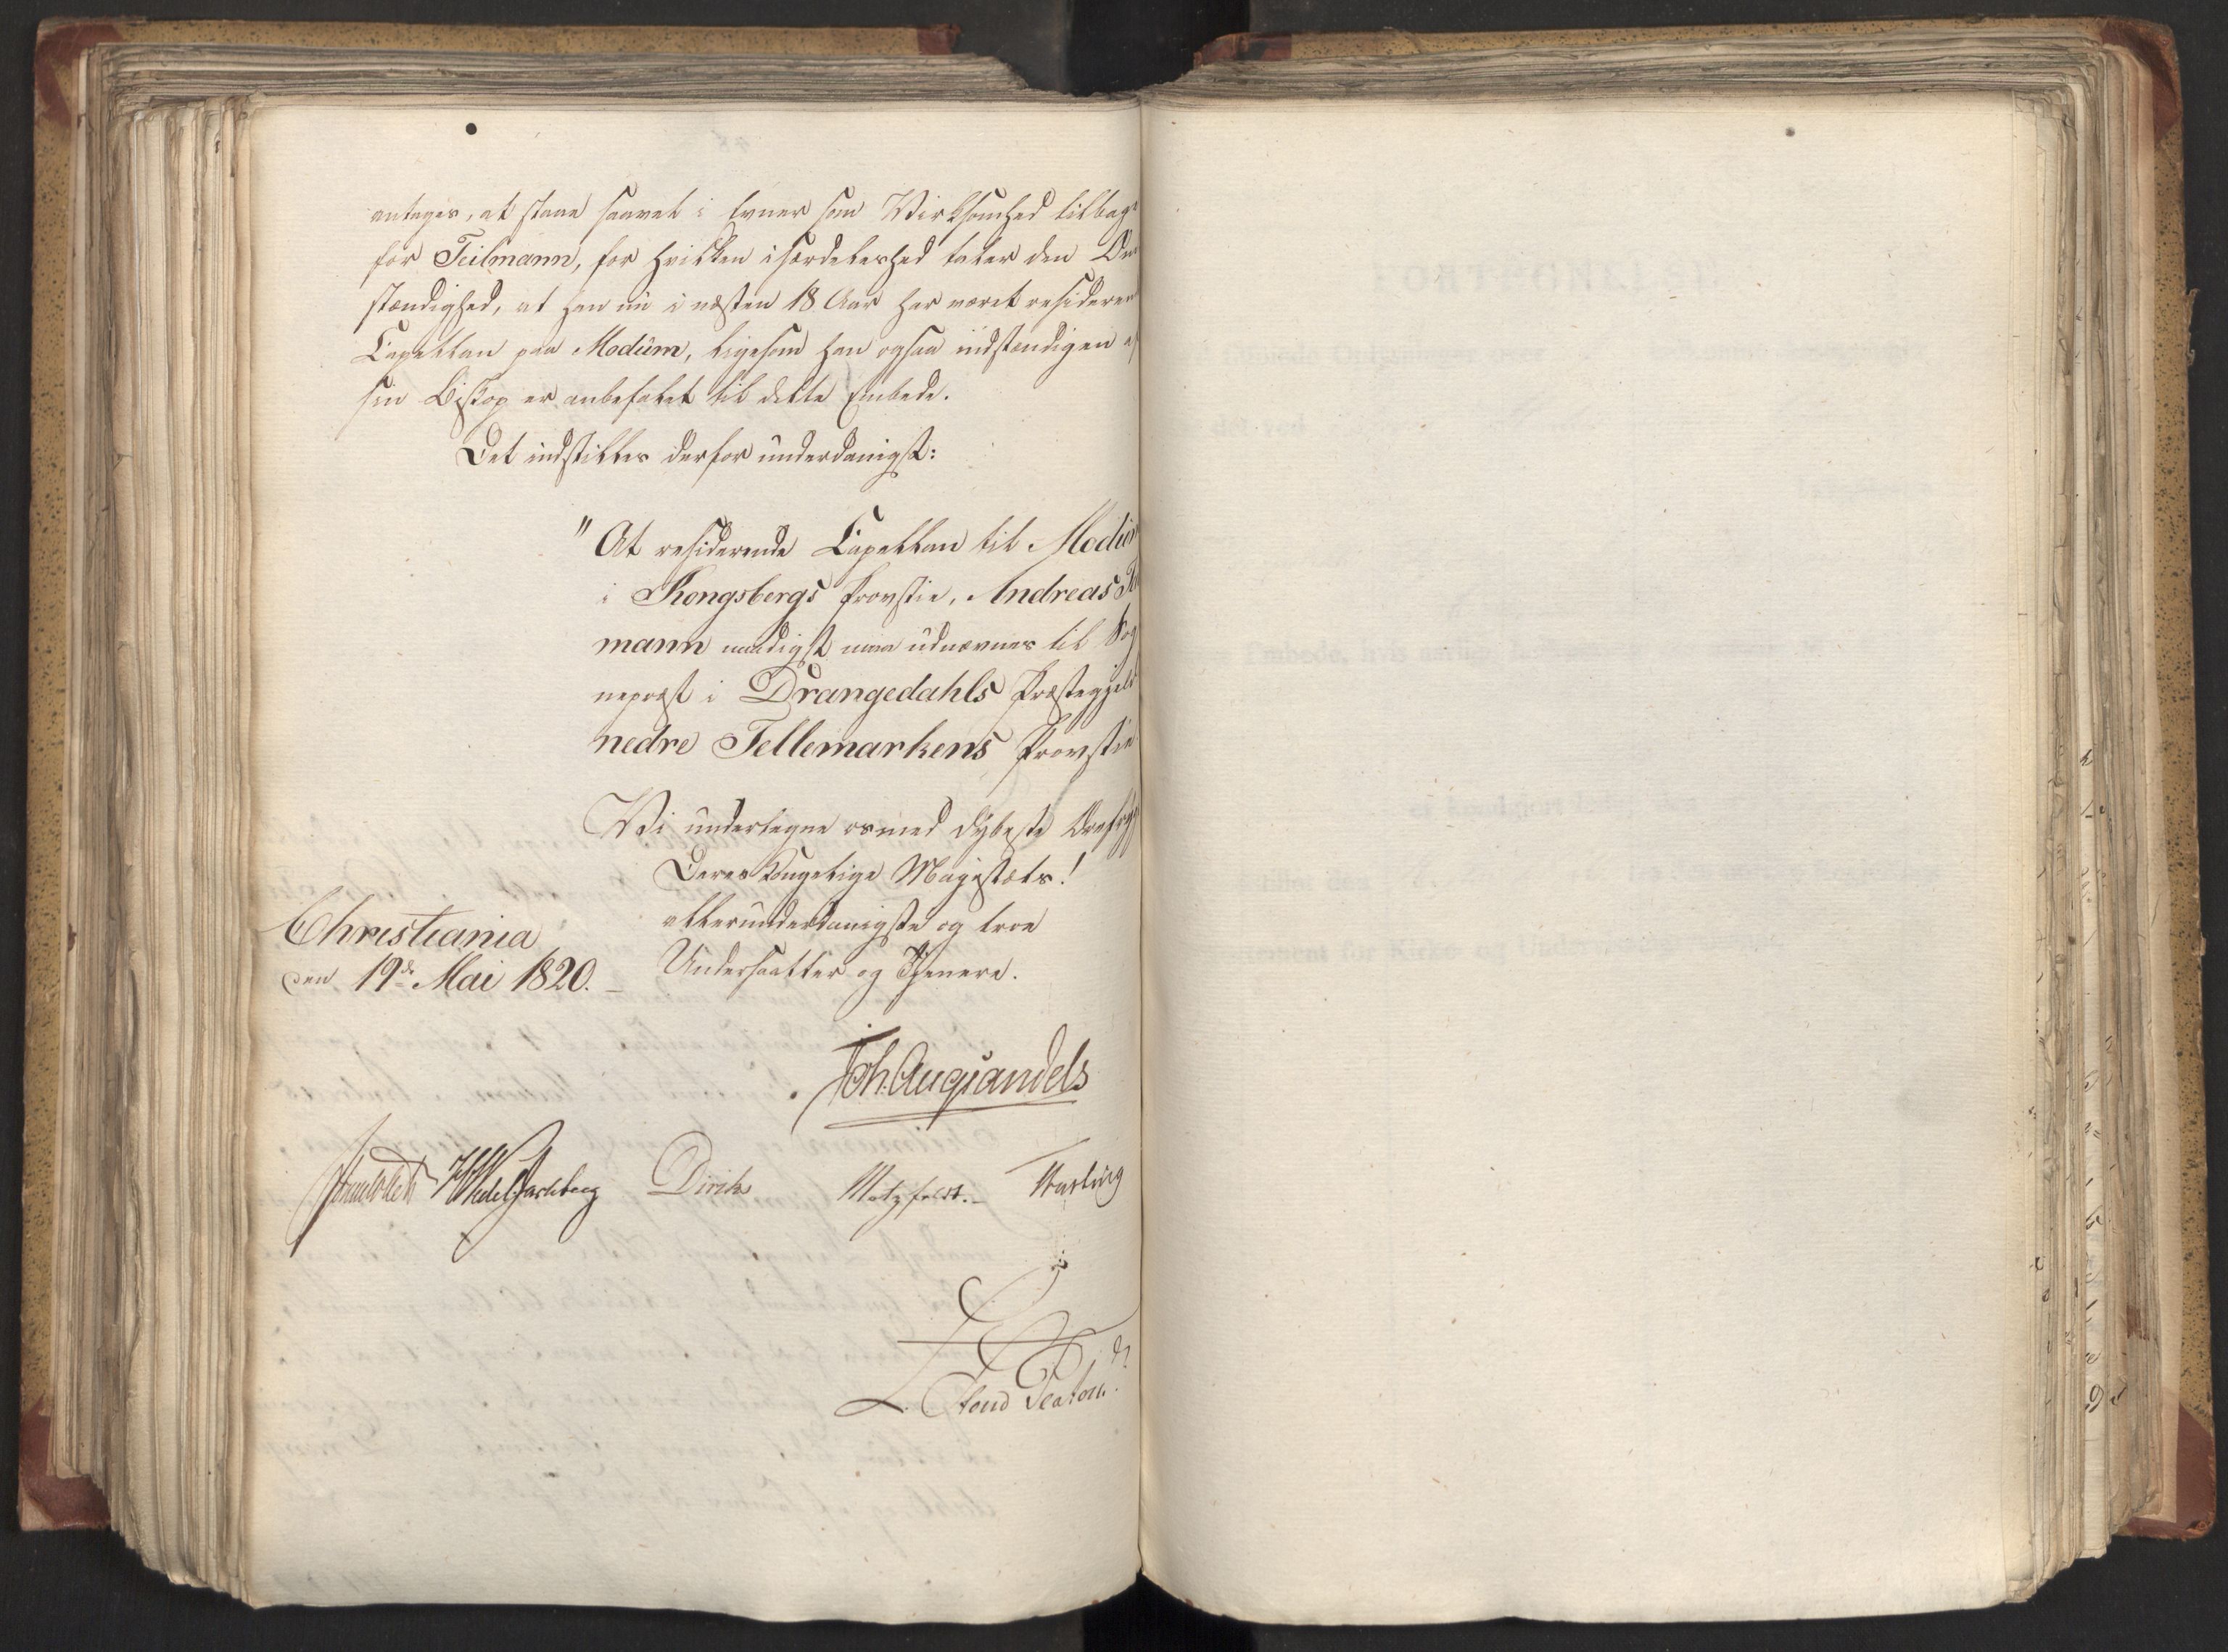 antages, at staae saavel i Evner som Virksomhed tilbage
for Teilmann, for hvilken i særdeleshed taler den Om
stændighed, at han nu i næsten 18 Aar har været residerende
Capellan paa Modum, ligesom han ogsaa indstændigen af
sin Biskop er anbefalet til dette Embede.
Det indstilles derfor underdanigst:
"At residerende Capellan til Modum
i Kongsbergs Provstie, Andreas Teil
mann naadigst maa udnævnes til Sog
nepræst i Drangedahls Præstegjeld
nedre Tellemarkens Provstie
Vi undertegne os med dybeste Ærefrygt
Deres Kongelige Majestæts!
allerunderdanigste og troe
Undersaatter og Tjenere.
Christiania
den 19de Mai 1820.
Joh. Aug. Sandels
Sommerhielm HWedelJarlsberg Diriks Motzfeldt. Fasting
L. Stoud Platou.